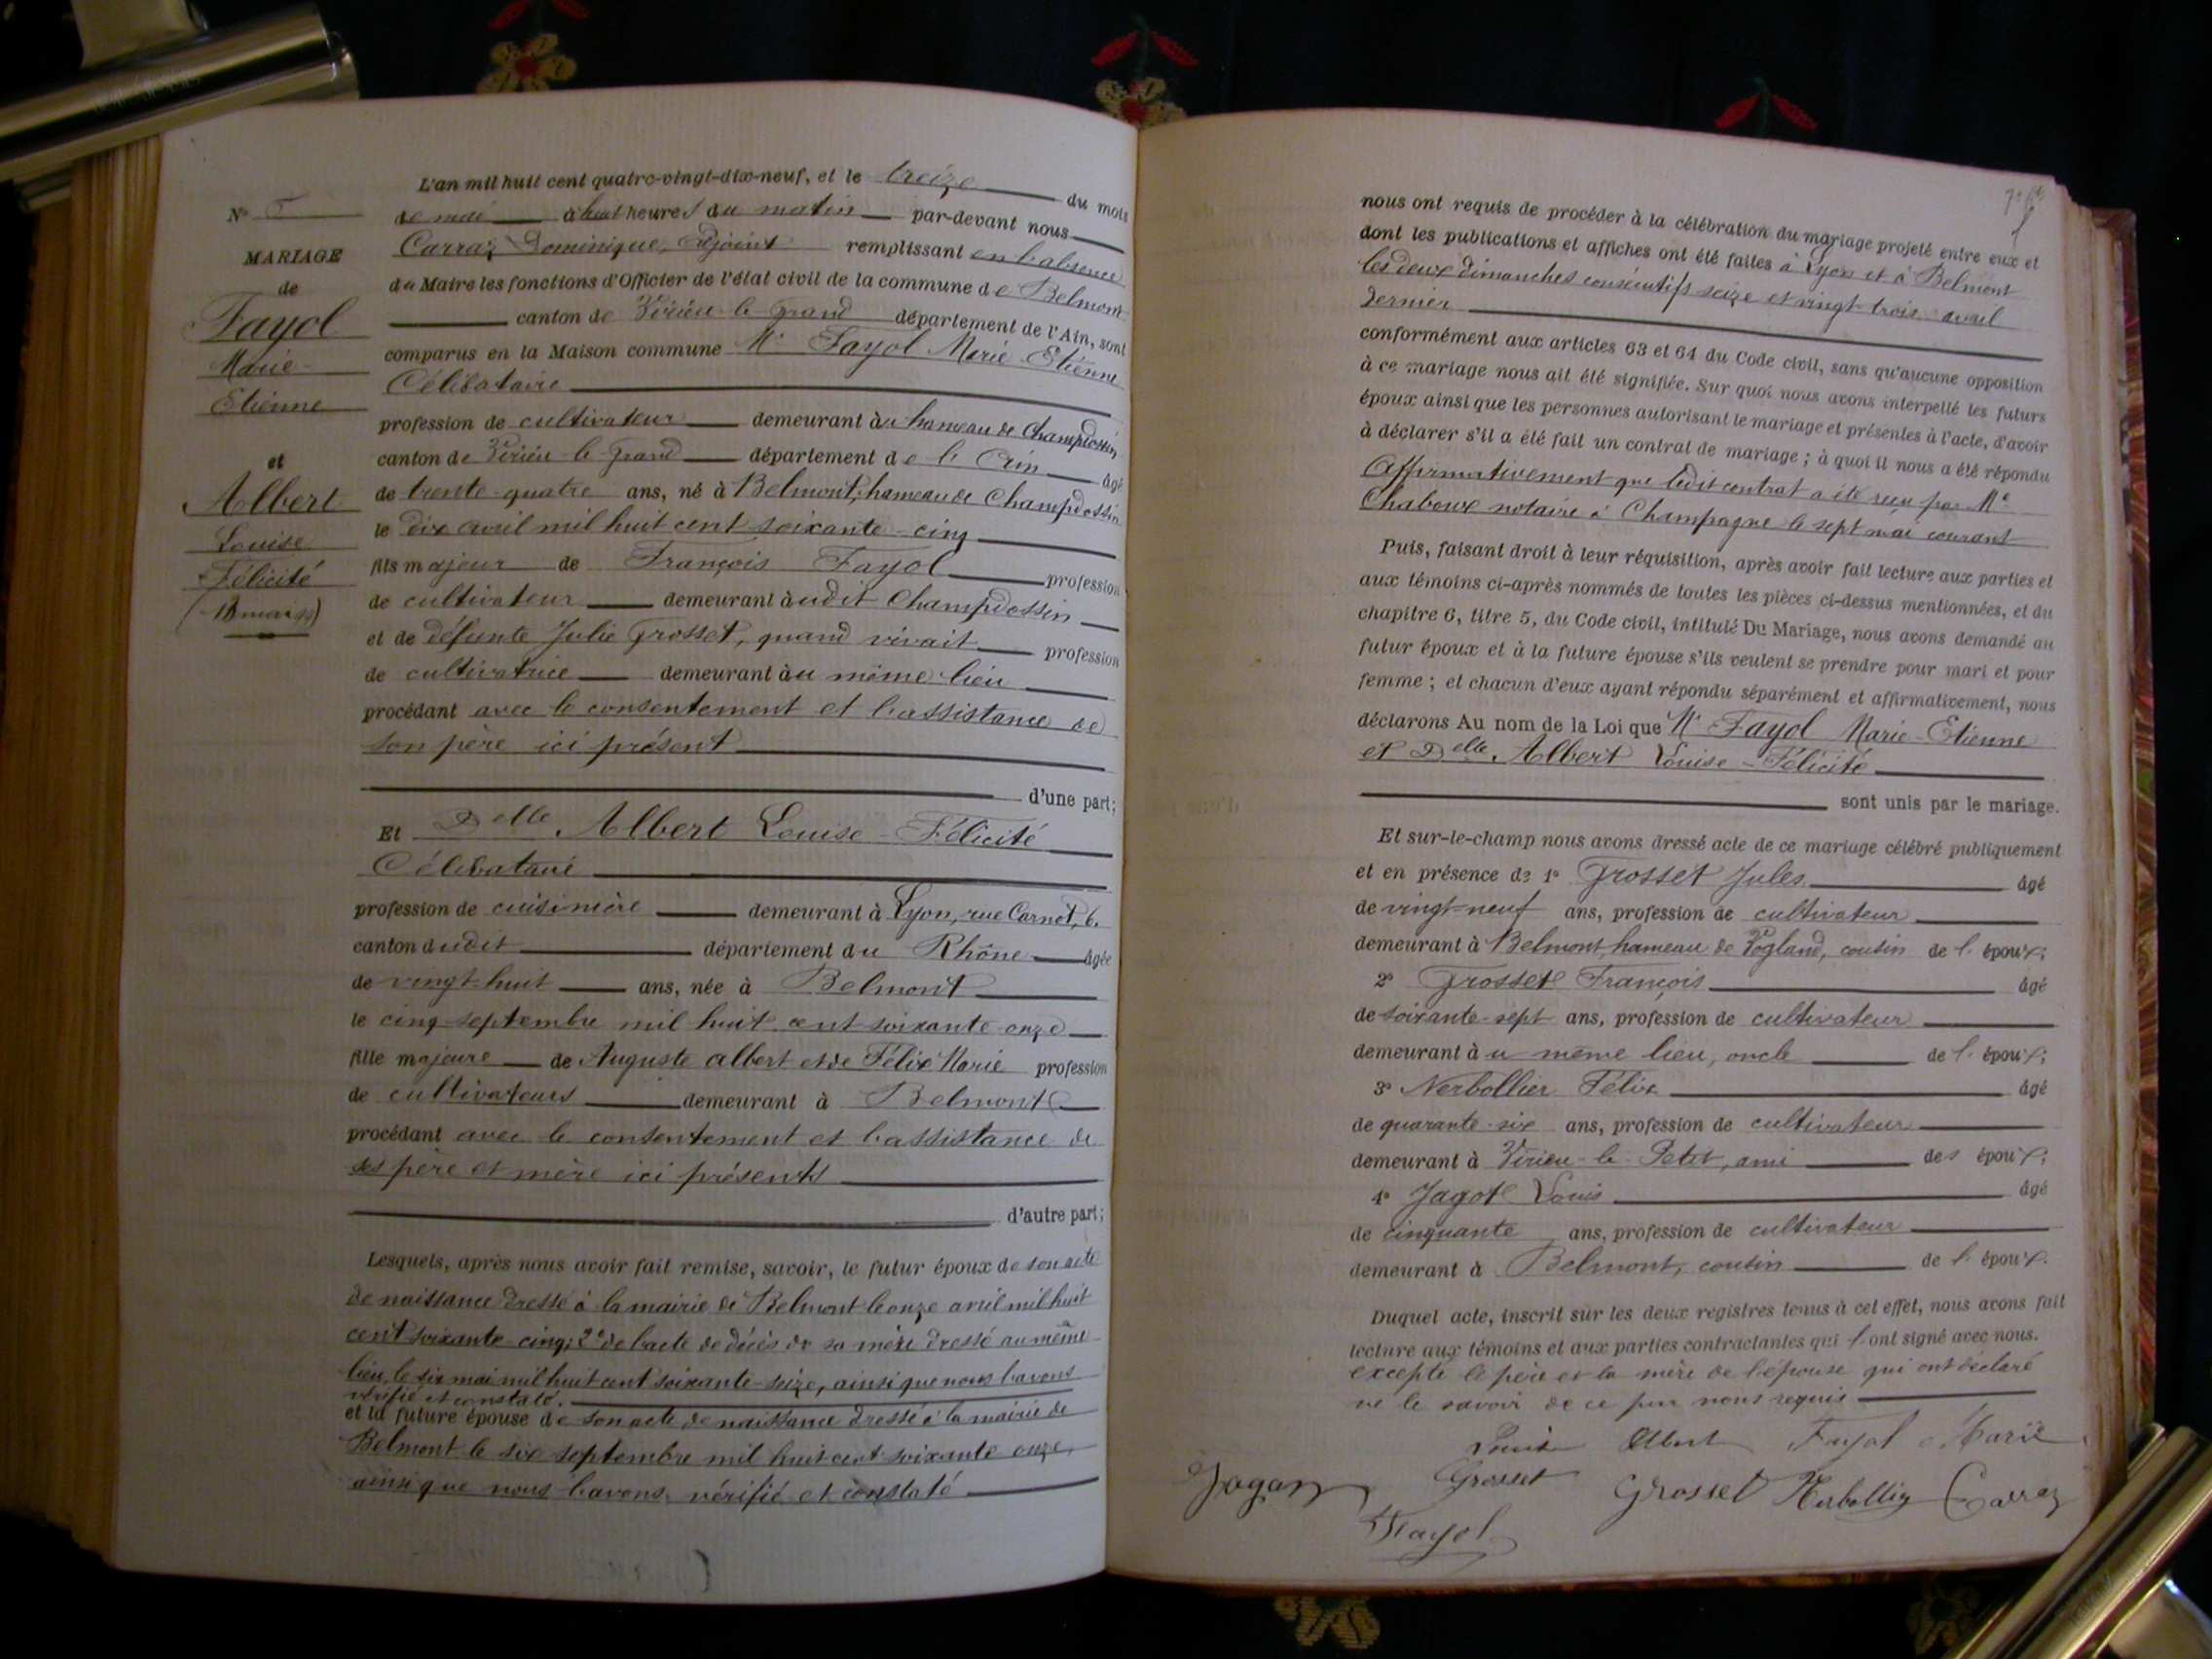 L'an mil huit cent quatre-vingt-dix-neuf, et le treize du mois
de mai à huit heures du matin par-devant nous
Carraz Dominique, adjoint remplissant en l'absence
du Maire les fonctions d'Officier de l'état civil de la commune de Belmont
canton de Virieu-le-Grand département de l'Ain, sont
comparus en la Maison commune Mr Fayol Marie-Etienne
Célibataire
profession de cultivateur demeurant au hameau de Champdossin
canton de Virieu-le-Grand département de l'Ain âgé
de trente-quatre ans, né à Belmont, hameau de Champdossin
le dix avril mil huit cent soixante-cinq
fils majeur de François Fayol profession
de cultivateur demeurant audit Champdossin
et de défunte Julie Grosset, quand vivait profession
de cultivatrice demeurant au même lieu
procédant avec le consentement et l'assistance de
son père ici présent
d'une part;
Et Delle Albert Louise-Félicité
Célibataire
profession de cuisinière demeurant à Lyon, rue Carnot, 6.
canton dudit département du Rhône âgée
de vingt-huit ans, née à Belmont
le cinq septembre mil huit cent soixante-onze
fille majeure de Auguste Albert et de Félix Marie profession
de cultivateurs demeurant à Belmont
procédant avec le consentement et l'assistance de
ses père et mère ici présents
d'autre part;
Lesquels, après nous avoir fait remise, savoir, le futur époux de son acte
de naissance dressé à la mairie de Belmont le onze avril mil huit
cent soixante-cinq; 2° de l'acte de décès de sa mère dressé au même
lieu, le six mai mil huit cent soixante-seize, ainsi que nous l'avons
vérifié et constaté.
et la future épouse de son acte de naissance dressé à la mairie de
Belmont le six septembre mil huit cent soixante onze,
ainsi que nous l'avons vérifié et constaté
N°
MARIAGE
de
Fayol
Marie-
Etienne
et
Albert
Louise
Félicité
nous ont requis de procéder à la célébration du mariage projeté entre eux et
dont les publications et affiches ont été faites à Lyon et à Belmont
les deux dimanches consécutifs seize et vingt-trois avril
dernier
conformément aux articles 63 et 64 du Code civil, sans qu'aucune opposition
à ce mariage nous ait été signifiée. Sur quoi nous avons interpellé les futurs
époux ainsi que les personnes autorisant le mariage et présentes à l'acte, d'avoir
à déclarer s'il a été fait un contrat de mariage; à quoi il nous a été répondu
Affirmativement que ledit contrat a été reçu par Me
Chaboux notaire à Champagne le sept mai courant
Puis, faisant droit à leur réquisition, après avoir fait lecture aux parties et
aux témoins ci-après nommés de toutes les pièces ci-dessus mentionnées, et du
chapitre 6, titre 5, du Code civil, intitulé Du Mariage, nous avons demandé au
futur époux et à la future épouse s'ils veulent se prendre pour mari et pour
femme; et chacun d'eux ayant répondu séparément et affirmativement, nous
déclarons Au nom de la Loi que Mr Fayol Marie-Etienne
et Delle Albert Louise-Félicité
sont unis par le mariage.
Et sur-le-champ nous avons dressé acte de ce mariage célébré publiquement
et en présence de 1° Grosset Jules âgé
de vingt-neuf ans, profession de cultivateur
demeurant à Belmont, hameau de Vogland, cousin de l'époux;
2° Grosset François âgé
de soixante-sept ans, profession de cultivateur
demeurant au même lieu, oncle de l'époux;
3° Nerbollier Félix âgé
de quarante-six ans, profession de cultivateur
demeurant à Virieu-le-Petit, ami des époux;
4° Jagot Louis âgé
de cinquante ans, profession de cultivateur
demeurant à Belmont, cousin de l'époux.
Duquel acte, inscrit sur les deux registres tenus à cet effet, nous avons fait
lecture aux témoins et aux parties contractantes qui l'ont signé avec nous.
excepté le père et la mère de l'épouse qui ont déclaré
ne le savoir de ce par nous requis
Louise Albert Fayol Marie
Grosset Grosset Nerbollier Carraz
Fayol